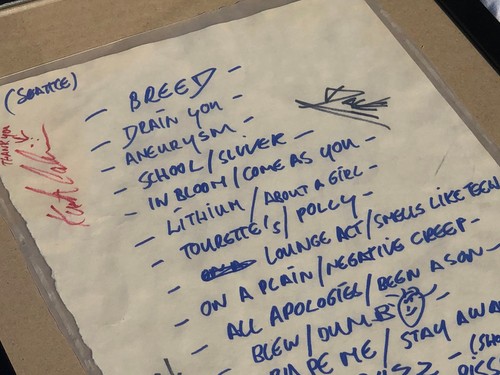 (SEATTLE)
THANK YOU
- BREED -
- DRAIN YOU -
- ANEURYSM -
- SCHOOL / SLIVER -
- IN BLOOM / COME AS YOU -
- LITHIUM / ABOUT A GIRL -
- TOURETTE'S / POLLY -
- LOUNGE ACT / SMELLS LIKE TEEN
- ON A PLAIN / NEGATIVE CREEP -
- ALL APOLOGIES / BEEN A SON -
- BLEW / DUMB -
RAPE ME / STAY AWA